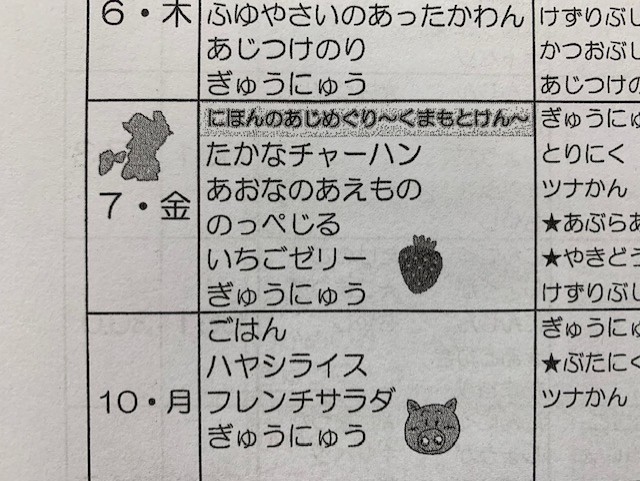 6・木
ふゆやさいのあったかわん
あじつけのり
ぎゅうにゅう
けずりぶし
かつおぶし
あじつけの
7・金
にほんのあじめぐり～くまもとけん～
たかなチャーハン
あおなのあえもの
のっぺじる
いちごゼリー
ぎゅうにゅう
ぎゅうにゅ
とりにく
ツナかん
★あぶらあ
★やきどう
けずりぶし
10・月
ごはん
ハヤシライス
フレンチサラダ
ぎゅうにゅう
ぎゅうにゅ
★ぶたにく
ツナかん